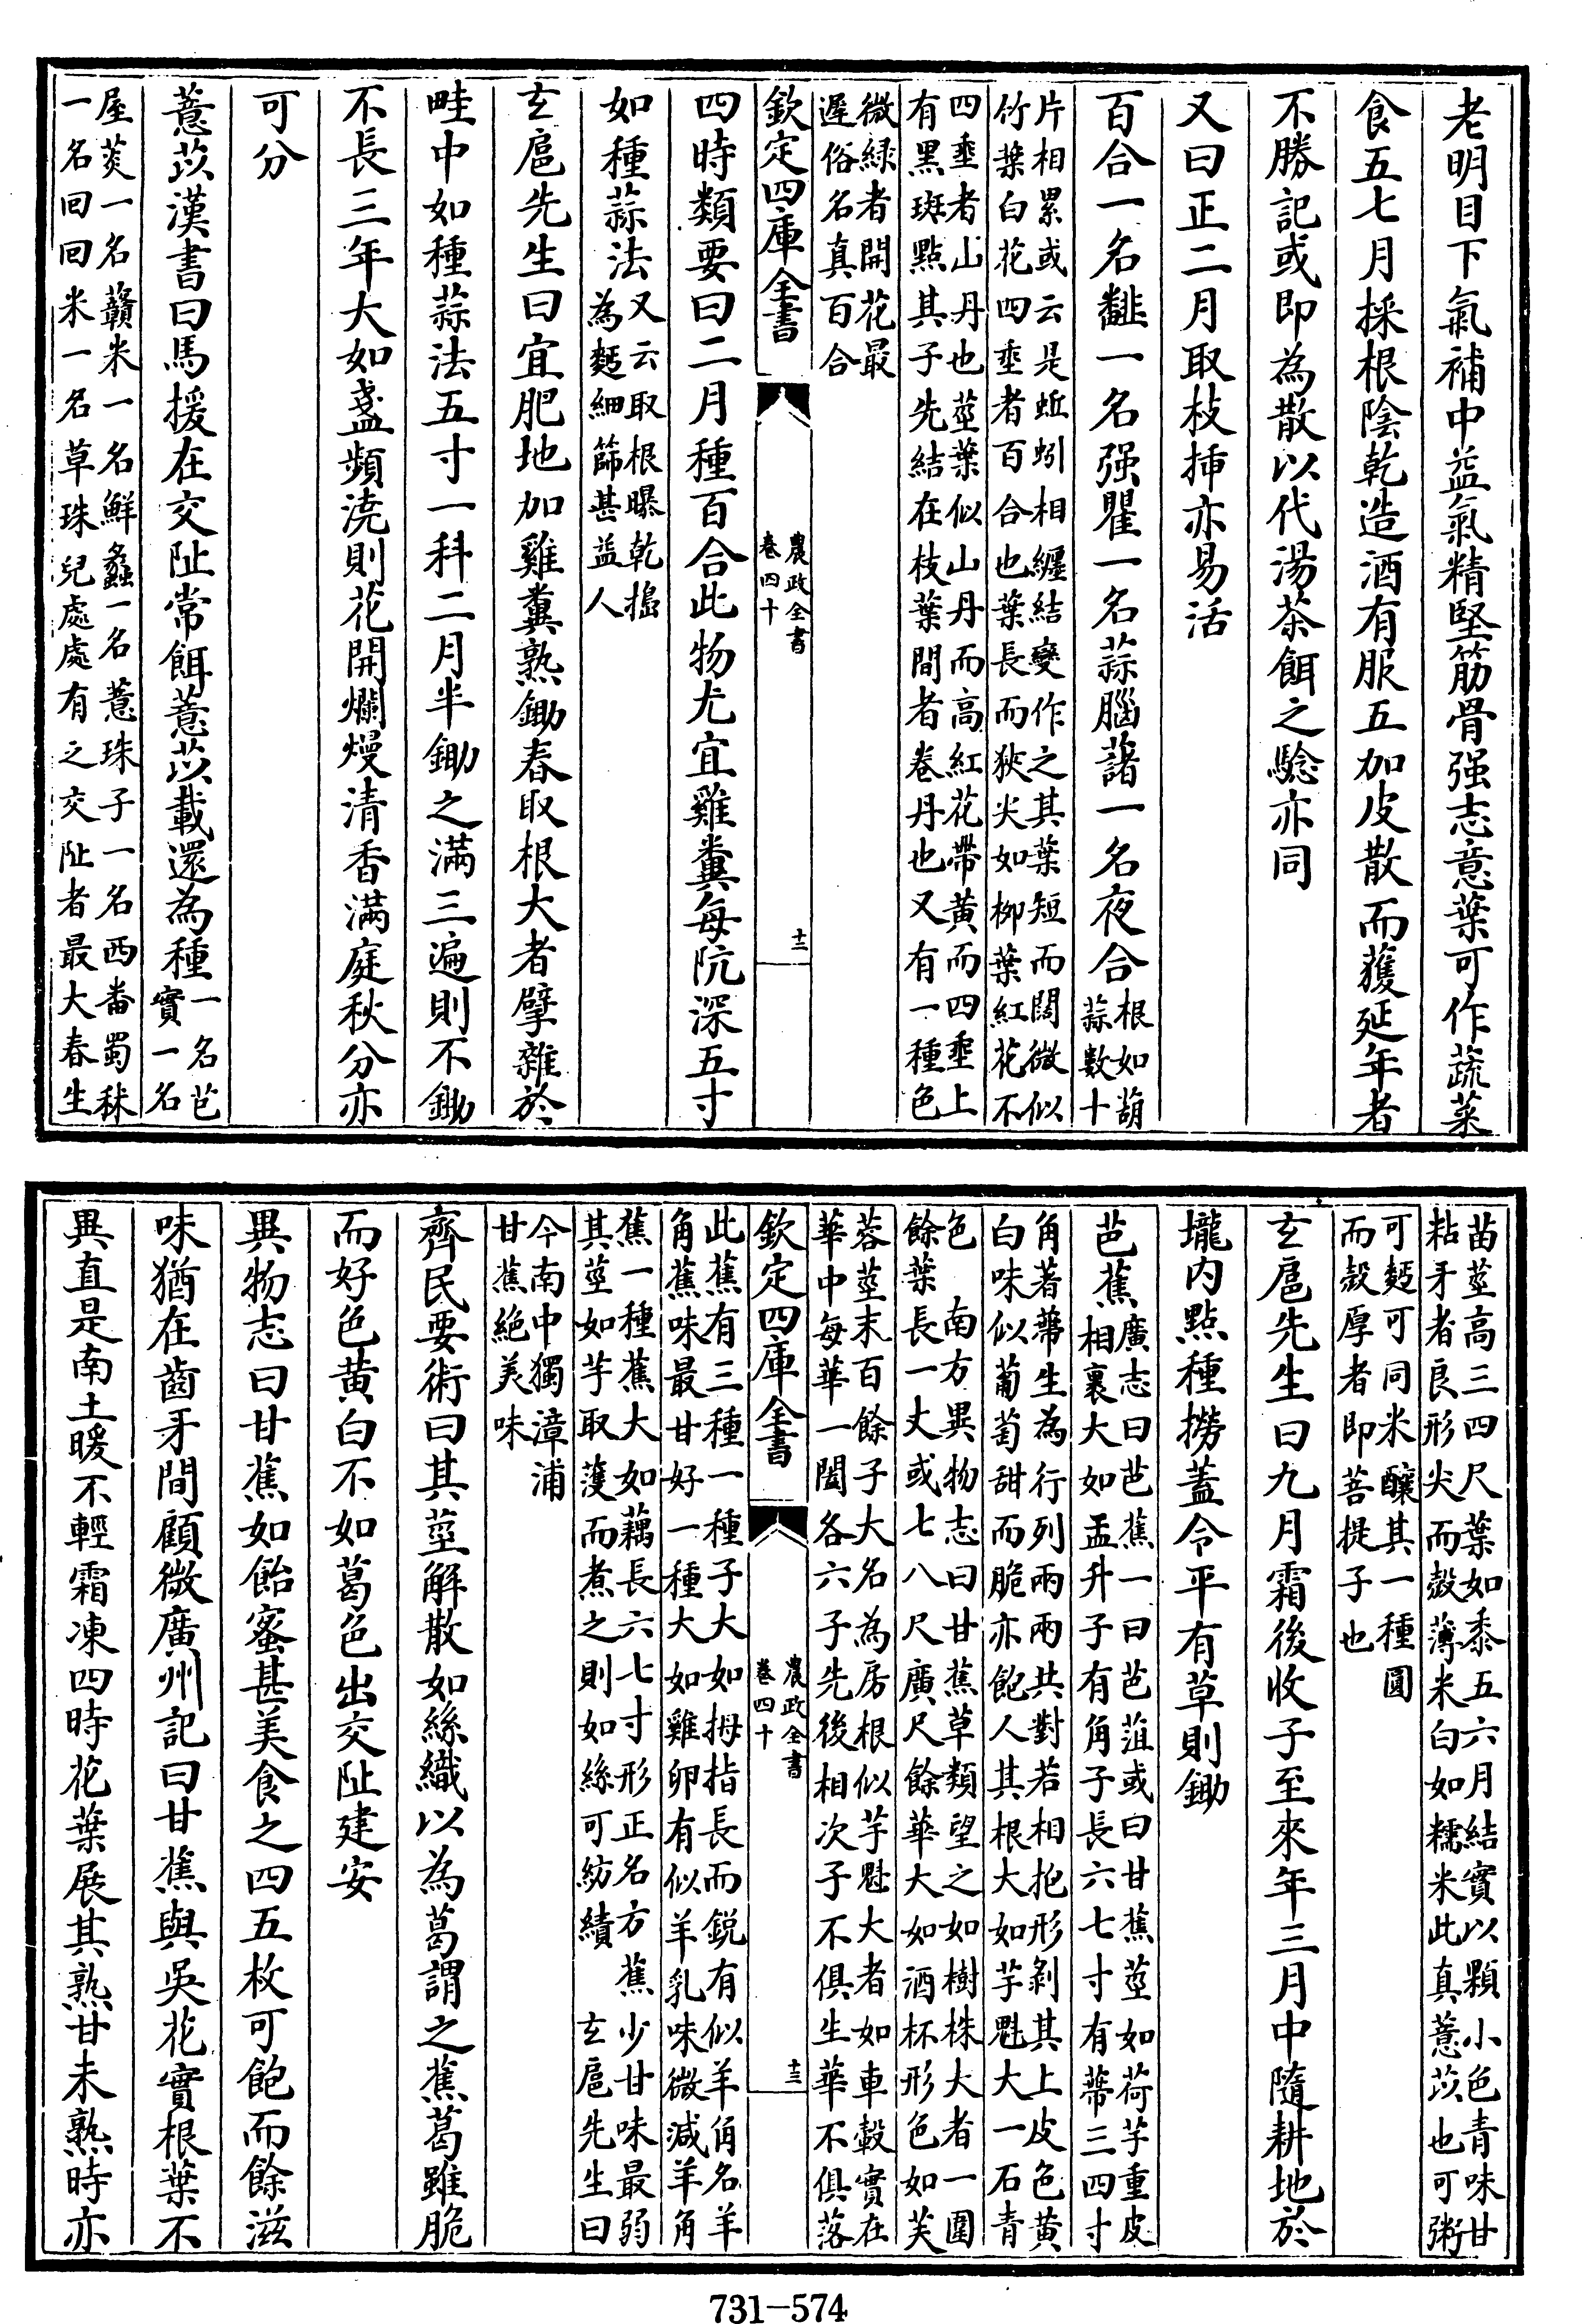 老明目下氣補中益氣精堅筋骨强志意葉可作蔬菜
食五七月採根陰乾造酒有服五加皮散而獲延年者
不勝記或即為散以代湯茶餌之驗亦同
又曰正二月取枝揷亦易活
百合一名䪥一名强瞿一名蒜腦藷一名夜合根如葫
蒜數十
片相累或云是蚯蚓相纒結變作之其葉短而闊微似
竹葉白花四垂者百合也葉長而狹尖如柳葉紅花不
四垂者山丹也莖葉似山丹而高紅花帶黄而四垂上
有黑斑點其子先結在枝葉間者卷丹也又有一種色
微緑者開花最
遲俗名真百合
欽定四庫全書
農政全書
卷四十
十二
四時類要曰二月種百合此物尤宜雞糞每阬深五寸
如種蒜法又云取根曝乾搗
為麪細篩甚益人
玄扈先生曰宜肥地加雞糞熟鋤春取根大者擘雜於
畦中如種蒜法五寸一科二月半鋤之滿三遍則不鋤
不長三年大如盞頻澆則花開爛熳清香滿庭秋分亦
可分
薏苡漢書曰馬援在交阯常餌薏苡載還為種一名芑
實一名
屋菼一名贛米一名鮮蠡一名薏珠子一名西番蜀秫
一名回回米一名草珠兒處處有之交阯者最大春生
苗莖高三四尺葉如黍五六月結實以顆小色青味甘
粘牙者良形尖而殼薄米白如糯米此真薏苡也可粥
可麪可同米釀其一種圓
而殼厚者即菩提子也
玄扈先生曰九月霜後收子至來年三月中隨耕地於
壠内點種撈蓋令平有草則鋤
芭蕉廣志曰芭蕉一曰芭菹或曰甘蕉莖如荷芋重皮
相裹大如盂升子有角子長六七寸有蔕三四寸
角著蔕生為行列兩兩共對若相抱形剝其上皮色黄
白味似葡萄甜而脆亦飽人其根大如芋魁大一石青
色　南方異物志曰甘蕉草類望之如樹株大者一圍
餘葉長一丈或七八尺廣尺餘華大如酒杯形色如芙
蓉莖末百餘子大名為房根似芋魁大者如車轂實在
華中每華一闔各六子先後相次子不俱生華不俱落
欽定四庫全書
農政全書
卷四十
十三
此蕉有三種一種子大如拇指長而鋭有似羊角名羊
角蕉味最甘好一種大如雞卵有似羊乳味微减羊角
蕉一種蕉大如藕長六七寸形正名方蕉少甘味最弱
其莖如芋取濩而煮之則如絲可紡績　玄扈先生曰
今南中獨漳浦
甘蕉絶美味
齊民要術曰其莖解散如絲織以為葛謂之蕉葛雖脆
而好色黄白不如葛色出交阯建安
異物志曰甘蕉如飴蜜甚美食之四五枚可飽而餘滋
味猶在齒牙間顧微廣州記曰甘蕉與吳花實根葉不
異直是南土暖不輕霜凍四時花葉展其熟甘未熟時亦
731-574